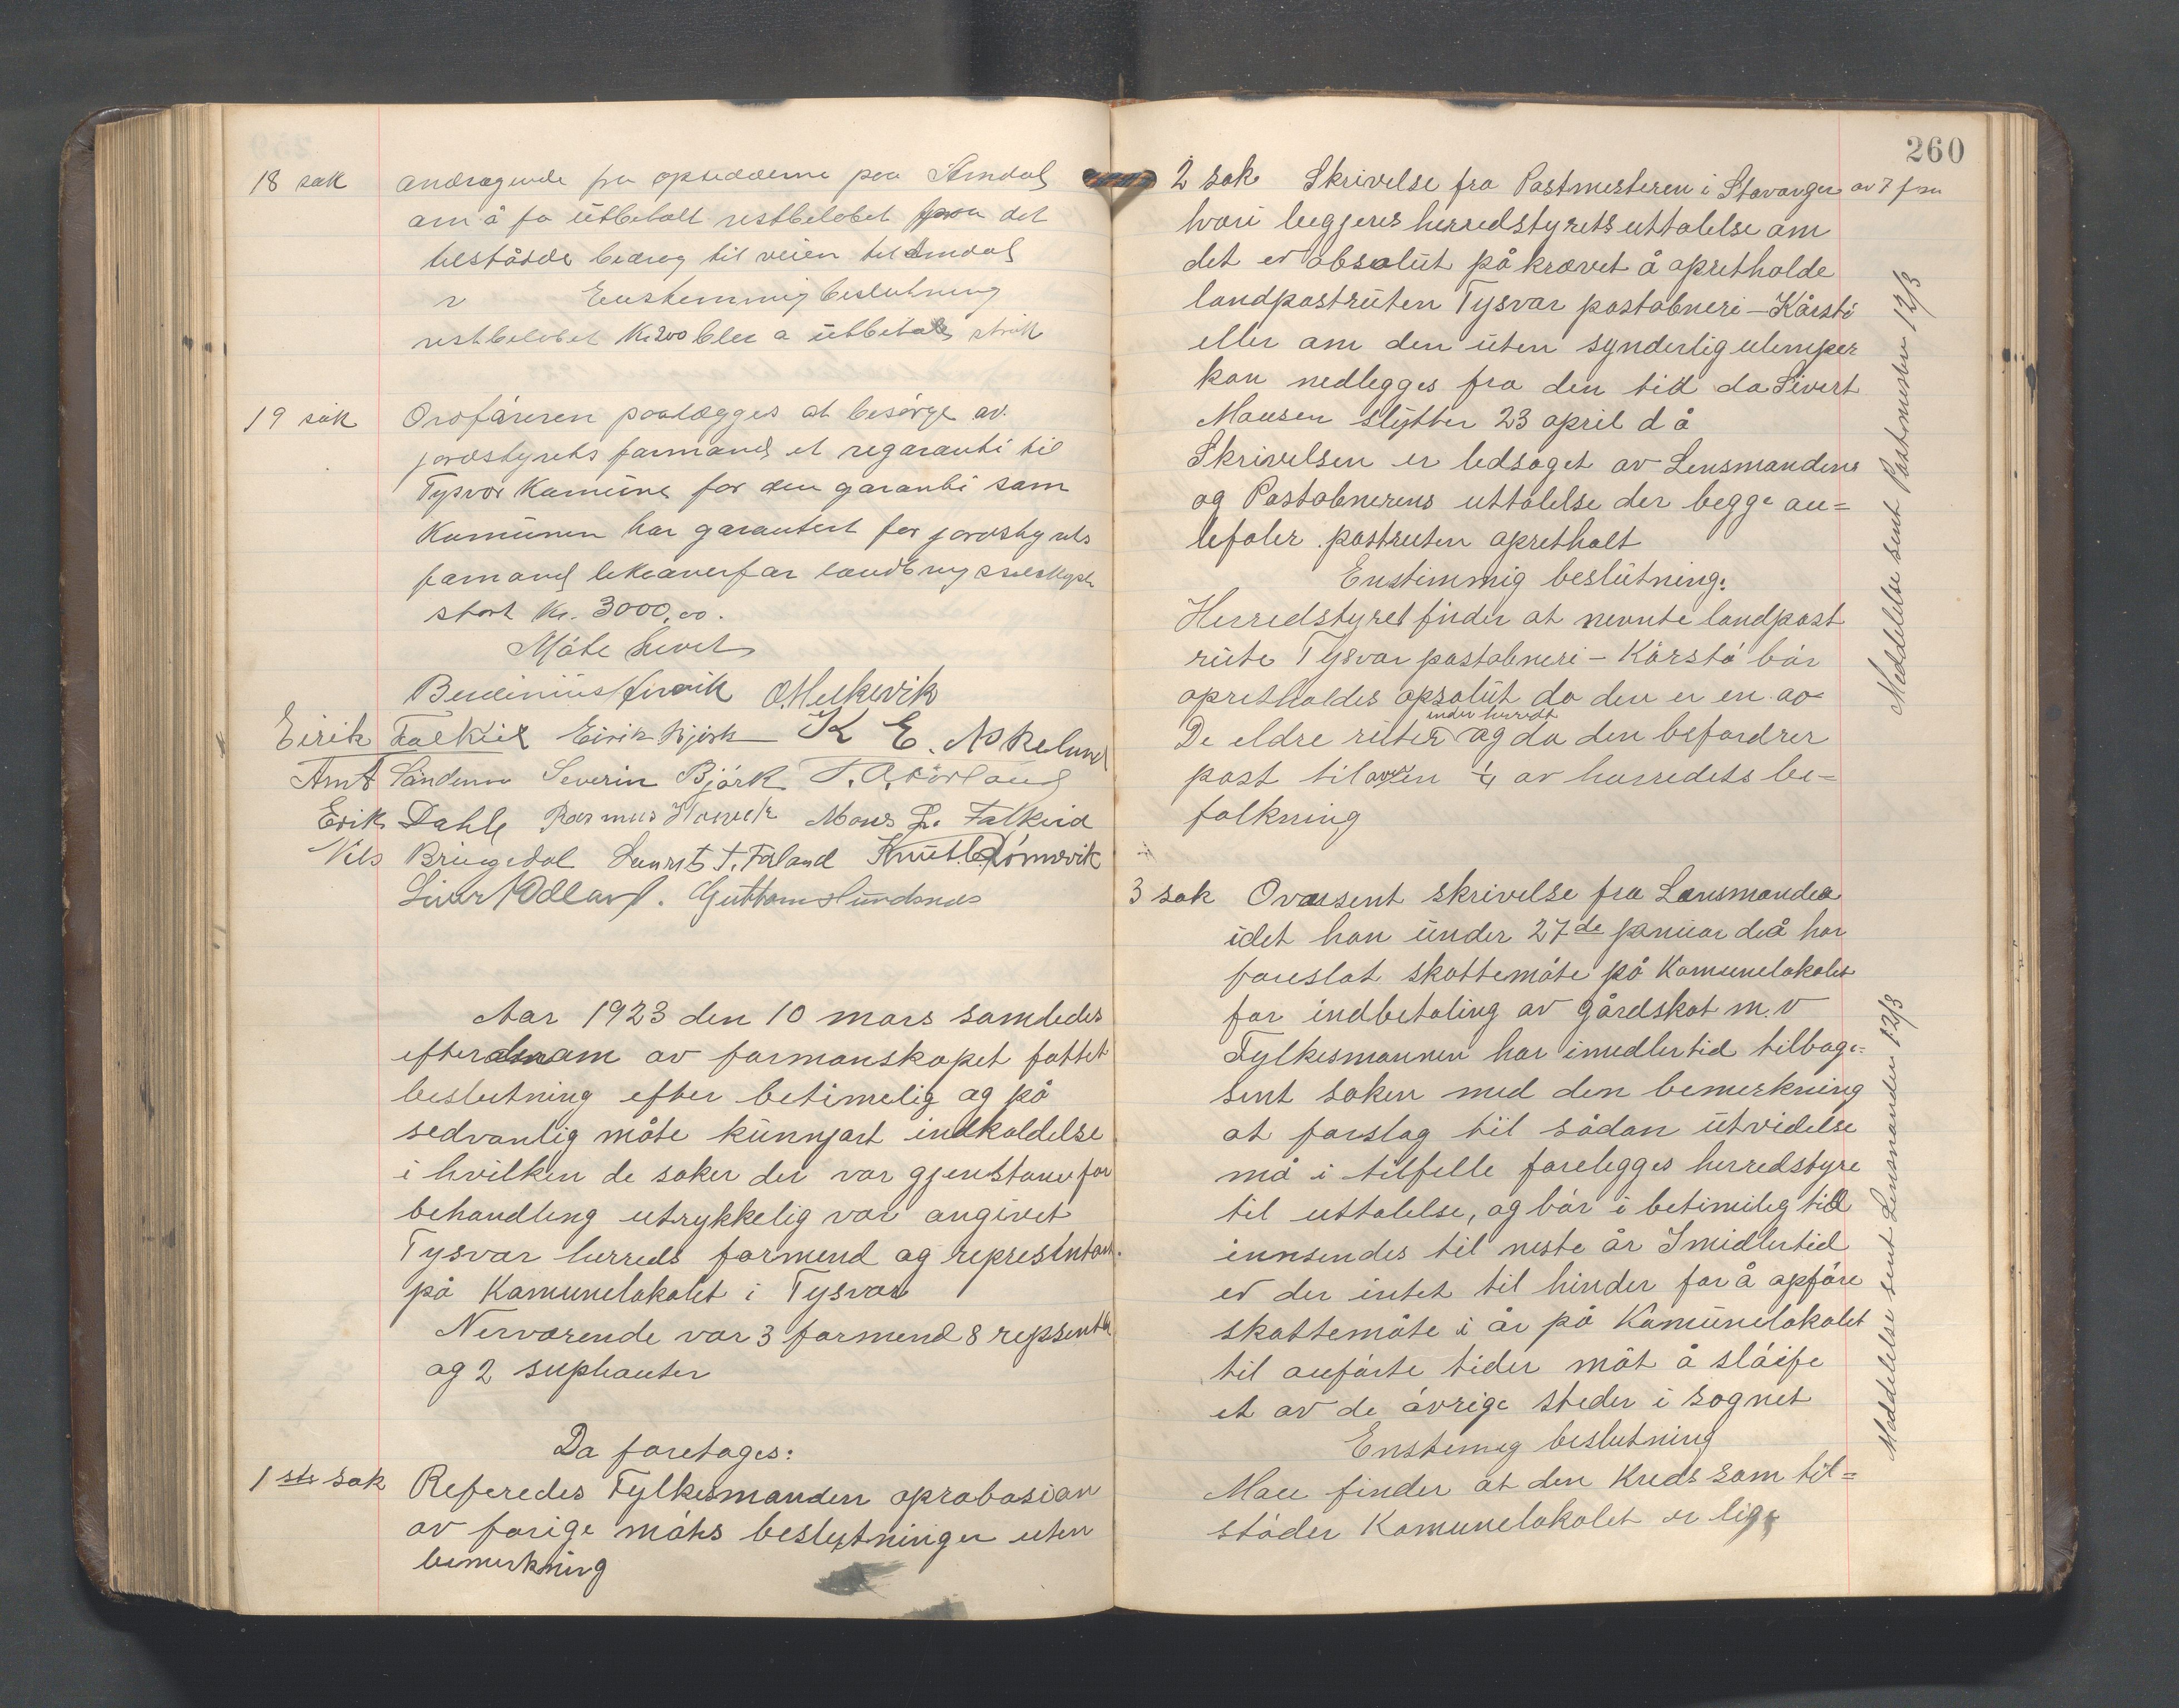 18 sak andragende fra opsidderne paa Amdal
om å fa utbetalt restbeløbet paa det
tilståede bedrag til veien til Amdal
Enstemmig beslutning
restbelobet Kr 200 blir a utbetale strak
19 sak Ordføreren paalægges at besørge av
jordstyrets formand et regaranti til
Tysvær Kamune for den garanti som
Kamunen har garantert for jordstyrets
formand likeoverfor
stort Kr. 3000,00.
Møte hevet
O. Melkevik
Eirik Falkeid Eirik Bjørk K E. Nokelund
Amt Severin Björk
Erik Dahle Rasmus Mons L. Falkeid
Nils Bringedal Laurits T. Førland Knut
Guttorm Sundsnes
Aar 1923 den 10 mars samledes
efter derom av formanskapet fattet
beslutning efter betimelig og på
sedvanlig måte kunnjort indkaldelse
i hvilken de saker der var gjenstand for
behandling utrykkelig var angivet
Tysvar herreds formend og representant.
på Kamunelokalet i Tysvar
Nerværende var 3 formend 8 repsentt
og 2 suplianter
Da foretages:
1 ste sak Referedes Fylkesmanden oprobasion
av forige møtes beslutninger uten
bemerkning
260
2 sak Skrivelse fra Postmesteren i Stavanger av 7 f m
hvori begjeres herredstyrets uttalelse om
det er absolut påkrævet å opretholde
landpostruten Tysvar postabneri – Kårstö
eller om den uten synderlig ulemper
kan nedlegges fra den tid da Sivert
Mausen slytter 23 april d å
Skrivelsen er ledsaget av Lensmandens
og Postabnerens uttalelse der begge an=
befaler postruten opretholt
Enstimmig beslutning:
Herredstyret finder at nevnte landpost
rute Tysvar postabneri – Kårstö bör
opretholdes opsolut da den er en av
De eldre ruter inden herredt og da den befordrer
post til over en 1/4 av herredets be=
folkning
3 sak Oversent skrivelse fra Lensmanden
idet han under 27de januar då har
foreslat skattemöte på Kamunelokalet
for indbetaling av gårdskat m.v
Fylkesmannen har imidlertid tilbage=
sent saken med den bemerkning
at forslag til sådan utvidelse
må i tilfelle forelegges herredstyre
til uttalelse, og bör i betimelig tid
innsendes til neste år Imidlertid
er der intet til hinder for å opföre
skattemöte i år på Kamunelokalet
til anförte tider möt å slöife
et av de övrige steder i sognet
Enstemig beslutning
Man finder at den Kreds som til=
stöder Kamunelokalet er lige
Meddelelse sent Postmesteren 12/3
Meddelelse sent Lensmanden 12/3